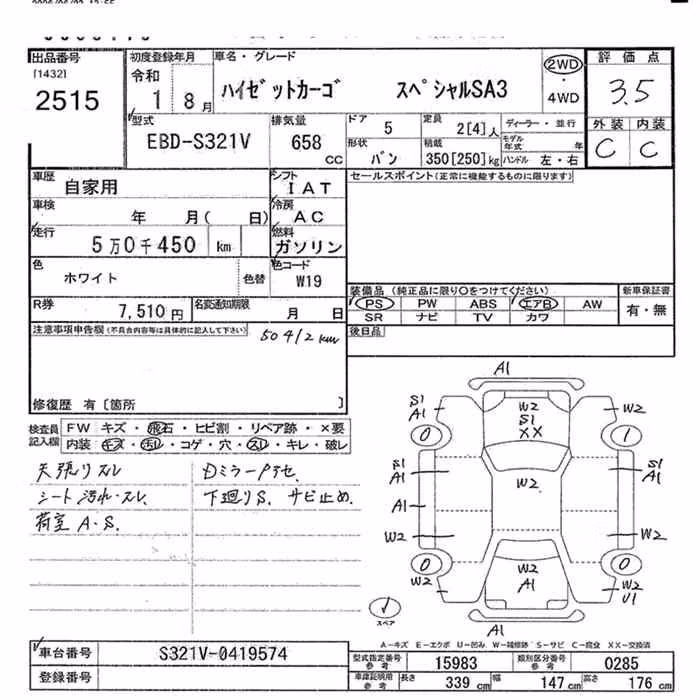 出品番号 初度登録年月 車名・グレード 2WD 評価点
[1432] 令和 ・
2515 1 8月 ハイゼットカーゴ スペシャルSA3 4WD 3.5
型式 排気量 ドア 5 定員 2[4]人 ディーラー・並行 外装 内装
EBD-S321V 658 cc 形状 バン 積載 350[250]kg モデル年式 年 C C
ハンドル 左・右
車歴 自家用 シフト IAT セールスポイント(正常に機能するものに限ります)
車検 年 月( 日) 冷房 AC
走行 5万0千450 km 燃料 ガソリン
色 ホワイト 色替 色コード W19
装備品 (純正品に限り○をつけてください) 新車保証書
R券 7,510円 名変通知期限 月 日 PS PW ABS エアB AW 有・無
SR ナビ TV カワ
注意事項申告欄(不具合内容等は具体的に記入して下さい) 50412km 後日品
修復歴 有 [箇所 ]
検査員記入欄 FW キズ・飛石・ヒビ割・リペア跡・×要
内装 キズ・汚れ・コゲ・穴・スレ・キレ・破レ
天張りスレ
シート汚れ・スレ 下廻りS. サビ止め.
荷室A・S.
A1
S1 A1 W2 S1 XX W2
0 1
S1 A1 W2 S1 A1
A1
W2 W2
0 0
W2 W2 A1 W2 U1
スペア A1
A-キズ E-エクボ U-凹み W-補修跡 S-サビ C-腐食 XX-交換済
車台番号 S321V-0419574 型式指定番号 参考 15983 類別区分番号 参考 0285
登録番号 車庫証明用 参考 長さ 339cm 幅 147cm 高さ 176cm